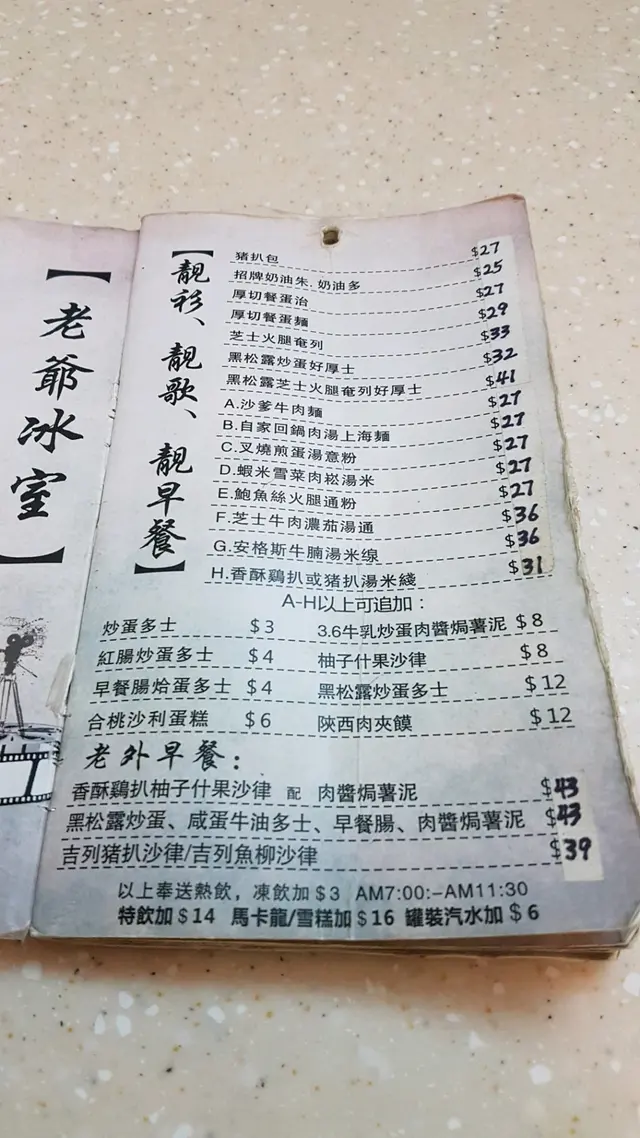 【老爺冰室】
【靚衫、靚歌、靚早餐】
猪扒包 $27
招牌奶油朱.奶油多 $25
厚切餐蛋治 $27
厚切餐蛋麵 $29
芝士火腿奄列 $33
黑松露炒蛋好厚士 $32
黑松露芝士火腿奄列好厚士 $41
A.沙爹牛肉麵 $27
B.自家回鍋肉湯上海麵 $27
C.叉燒煎蛋湯意粉 $27
D.蝦米雪菜肉崧湯米 $27
E.鮑魚絲火腿通粉 $27
F.芝士牛肉濃茄湯通 $36
G.安格斯牛腩湯米缐 $36
H.香酥鷄扒或猪扒湯米綫 $31
A-H以上可追加：
炒蛋多士 $3 3.6牛乳炒蛋肉醬焗薯泥 $8
紅腸炒蛋多士 $4 柚子什果沙律 $8
早餐腸烚蛋多士 $4 黑松露炒蛋多士 $12
合桃沙利蛋糕 $6 陝西肉夾饃 $12
老外早餐：
香酥鷄扒柚子什果沙律 配 肉醬焗薯泥 $43
黑松露炒蛋、咸蛋牛油多士、早餐腸、肉醬焗薯泥 $43
吉列猪扒沙律/吉列魚柳沙律 $39
以上奉送熱飲，凍飲加$3 AM7:00:–AM11:30
特飲加$14 馬卡龍/雪糕加$16 罐裝汽水加$6